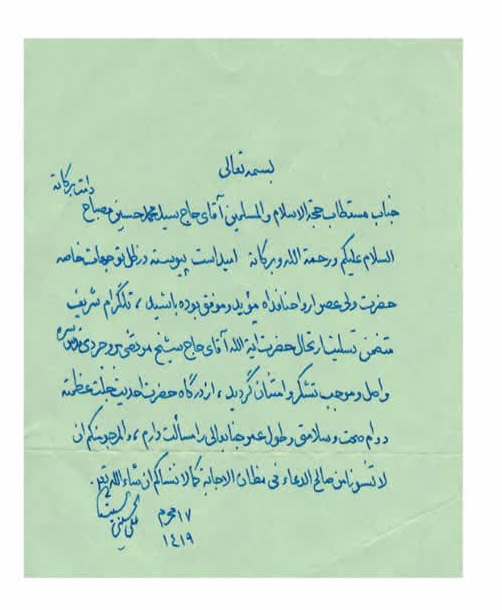 بسمه تعالی
جناب مستطاب حجة الاسلام والمسلمین آقای حاج سید محمد حسین مصباح دامت برکاته
السلام علیکم ورحمة الله وبرکاته امید است پیوسته در ظل توجهات خاصه
حضرت ولی عصر ارواحنا فداه مؤید و موفق بوده باشید ، تلگرام شریف
متضمن تسلیت ارتحال حضرت آیة الله آقای حاج شیخ مرتضی بروجردی قدس سره
واصل و موجب تشکر و امتنان گردید ، از درگاه حضرت احدیت جلت عظمته
دوام صحت و سلامتی و طول عمر جنابعالی را مسألت دارم ، والمرجو منکم ان
لا تنسونا من صالح الدعاء فی مظان الاجابة کما لا ننساکم ان شاء الله تعالی .
علی الحسینی
۱۷ محرم
۱۴۱۹